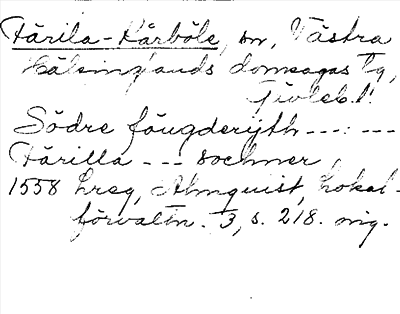 Färila-Kårböle, sn, Västra
Hälsinglands domsagas tg,
Gävleb. l.
Södre fougderijth ---:---
Färilla --- sochner,
1558 hreg, Almquist, Lokal-
förvaltn. 3, s. 218. mg.